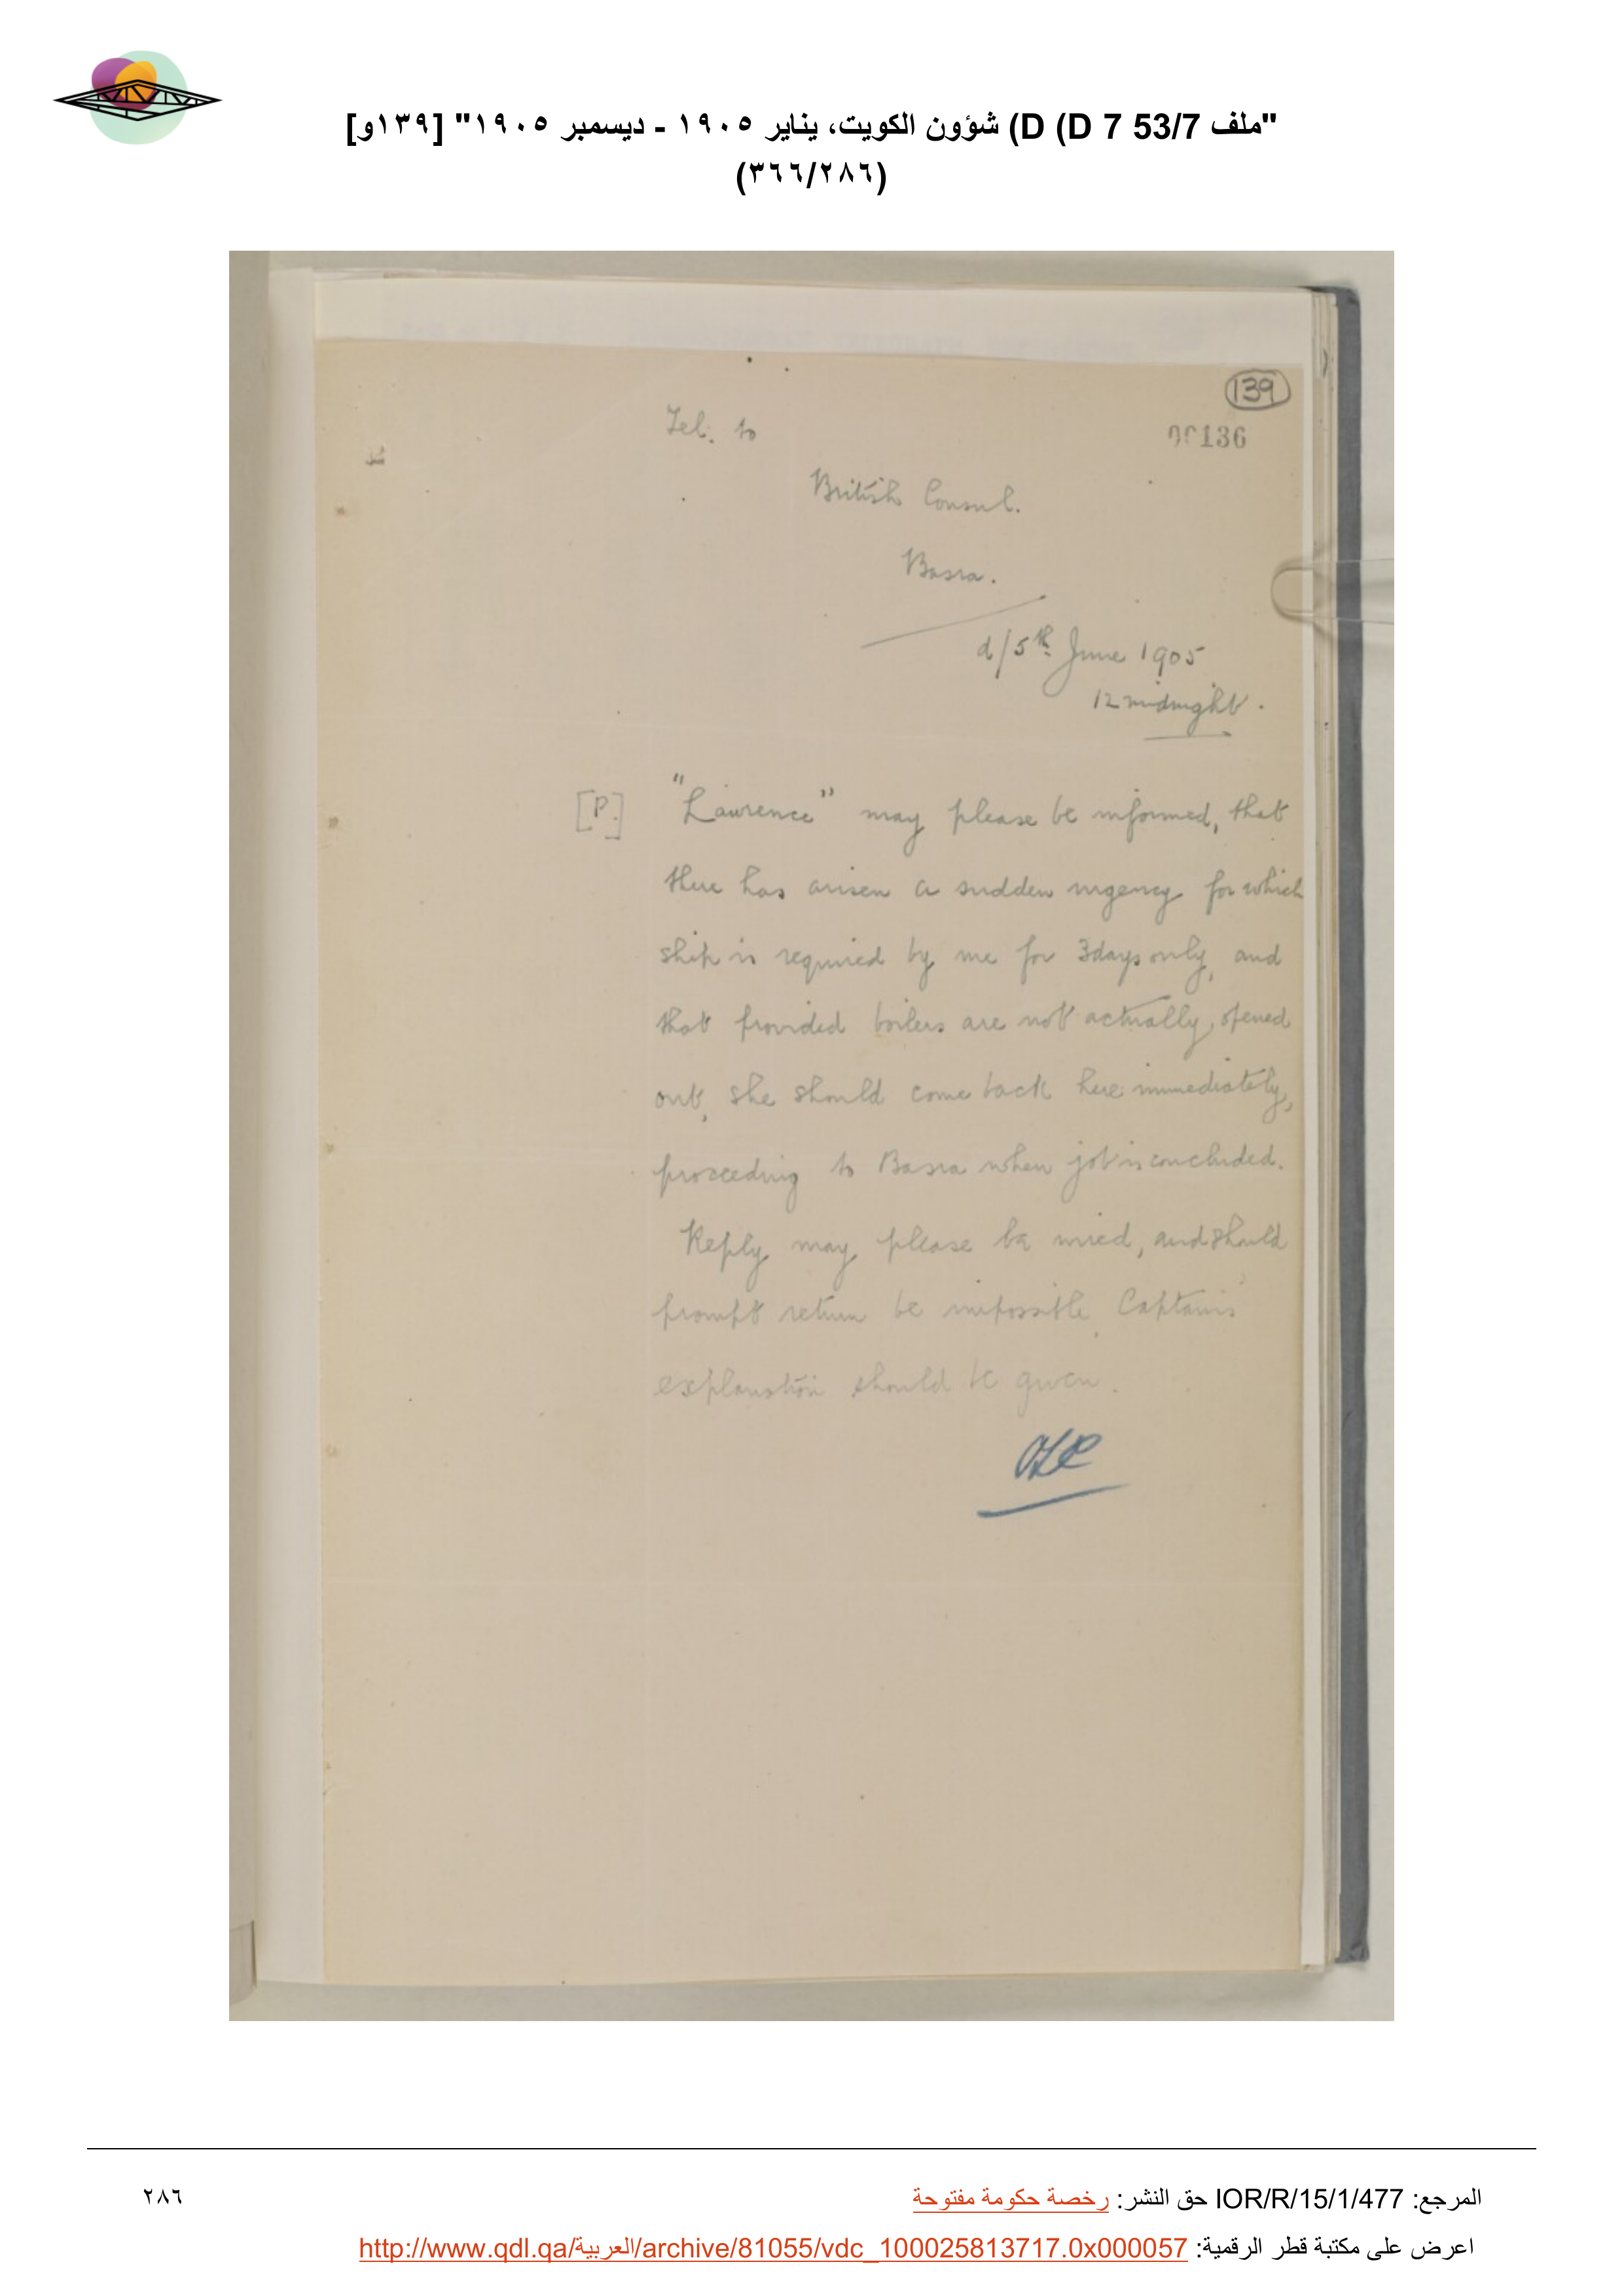 "ملف 53/7 D 7) D) شؤون الكويت، يناير ١٩٠٥ - ديسمبر ١٩٠٥" [١٣٩و]
(٣٦٦/٢٨٦)
139
00136
Tel. to
British Consul.
Basra.
d/5th June 1905
12 midnight.
[P.] "Lawrence" may please be informed, that
there has arisen a sudden urgency for which
ship is required by me for 3 days only, and
that provided boilers are not actually opened
out, she should come back here immediately,
proceeding to Basra when job is concluded.
Reply may please be wired, and should
prompt return be impossible, Captain's
explanation should be given.
المرجع: IOR/R/15/1/477 حق النشر: رخصة حكومة مفتوحة
٢٨٦
اعرض على مكتبة قطر الرقمية: http://www.qdl.qa/العربية/archive/81055/vdc_100025813717.0x000057